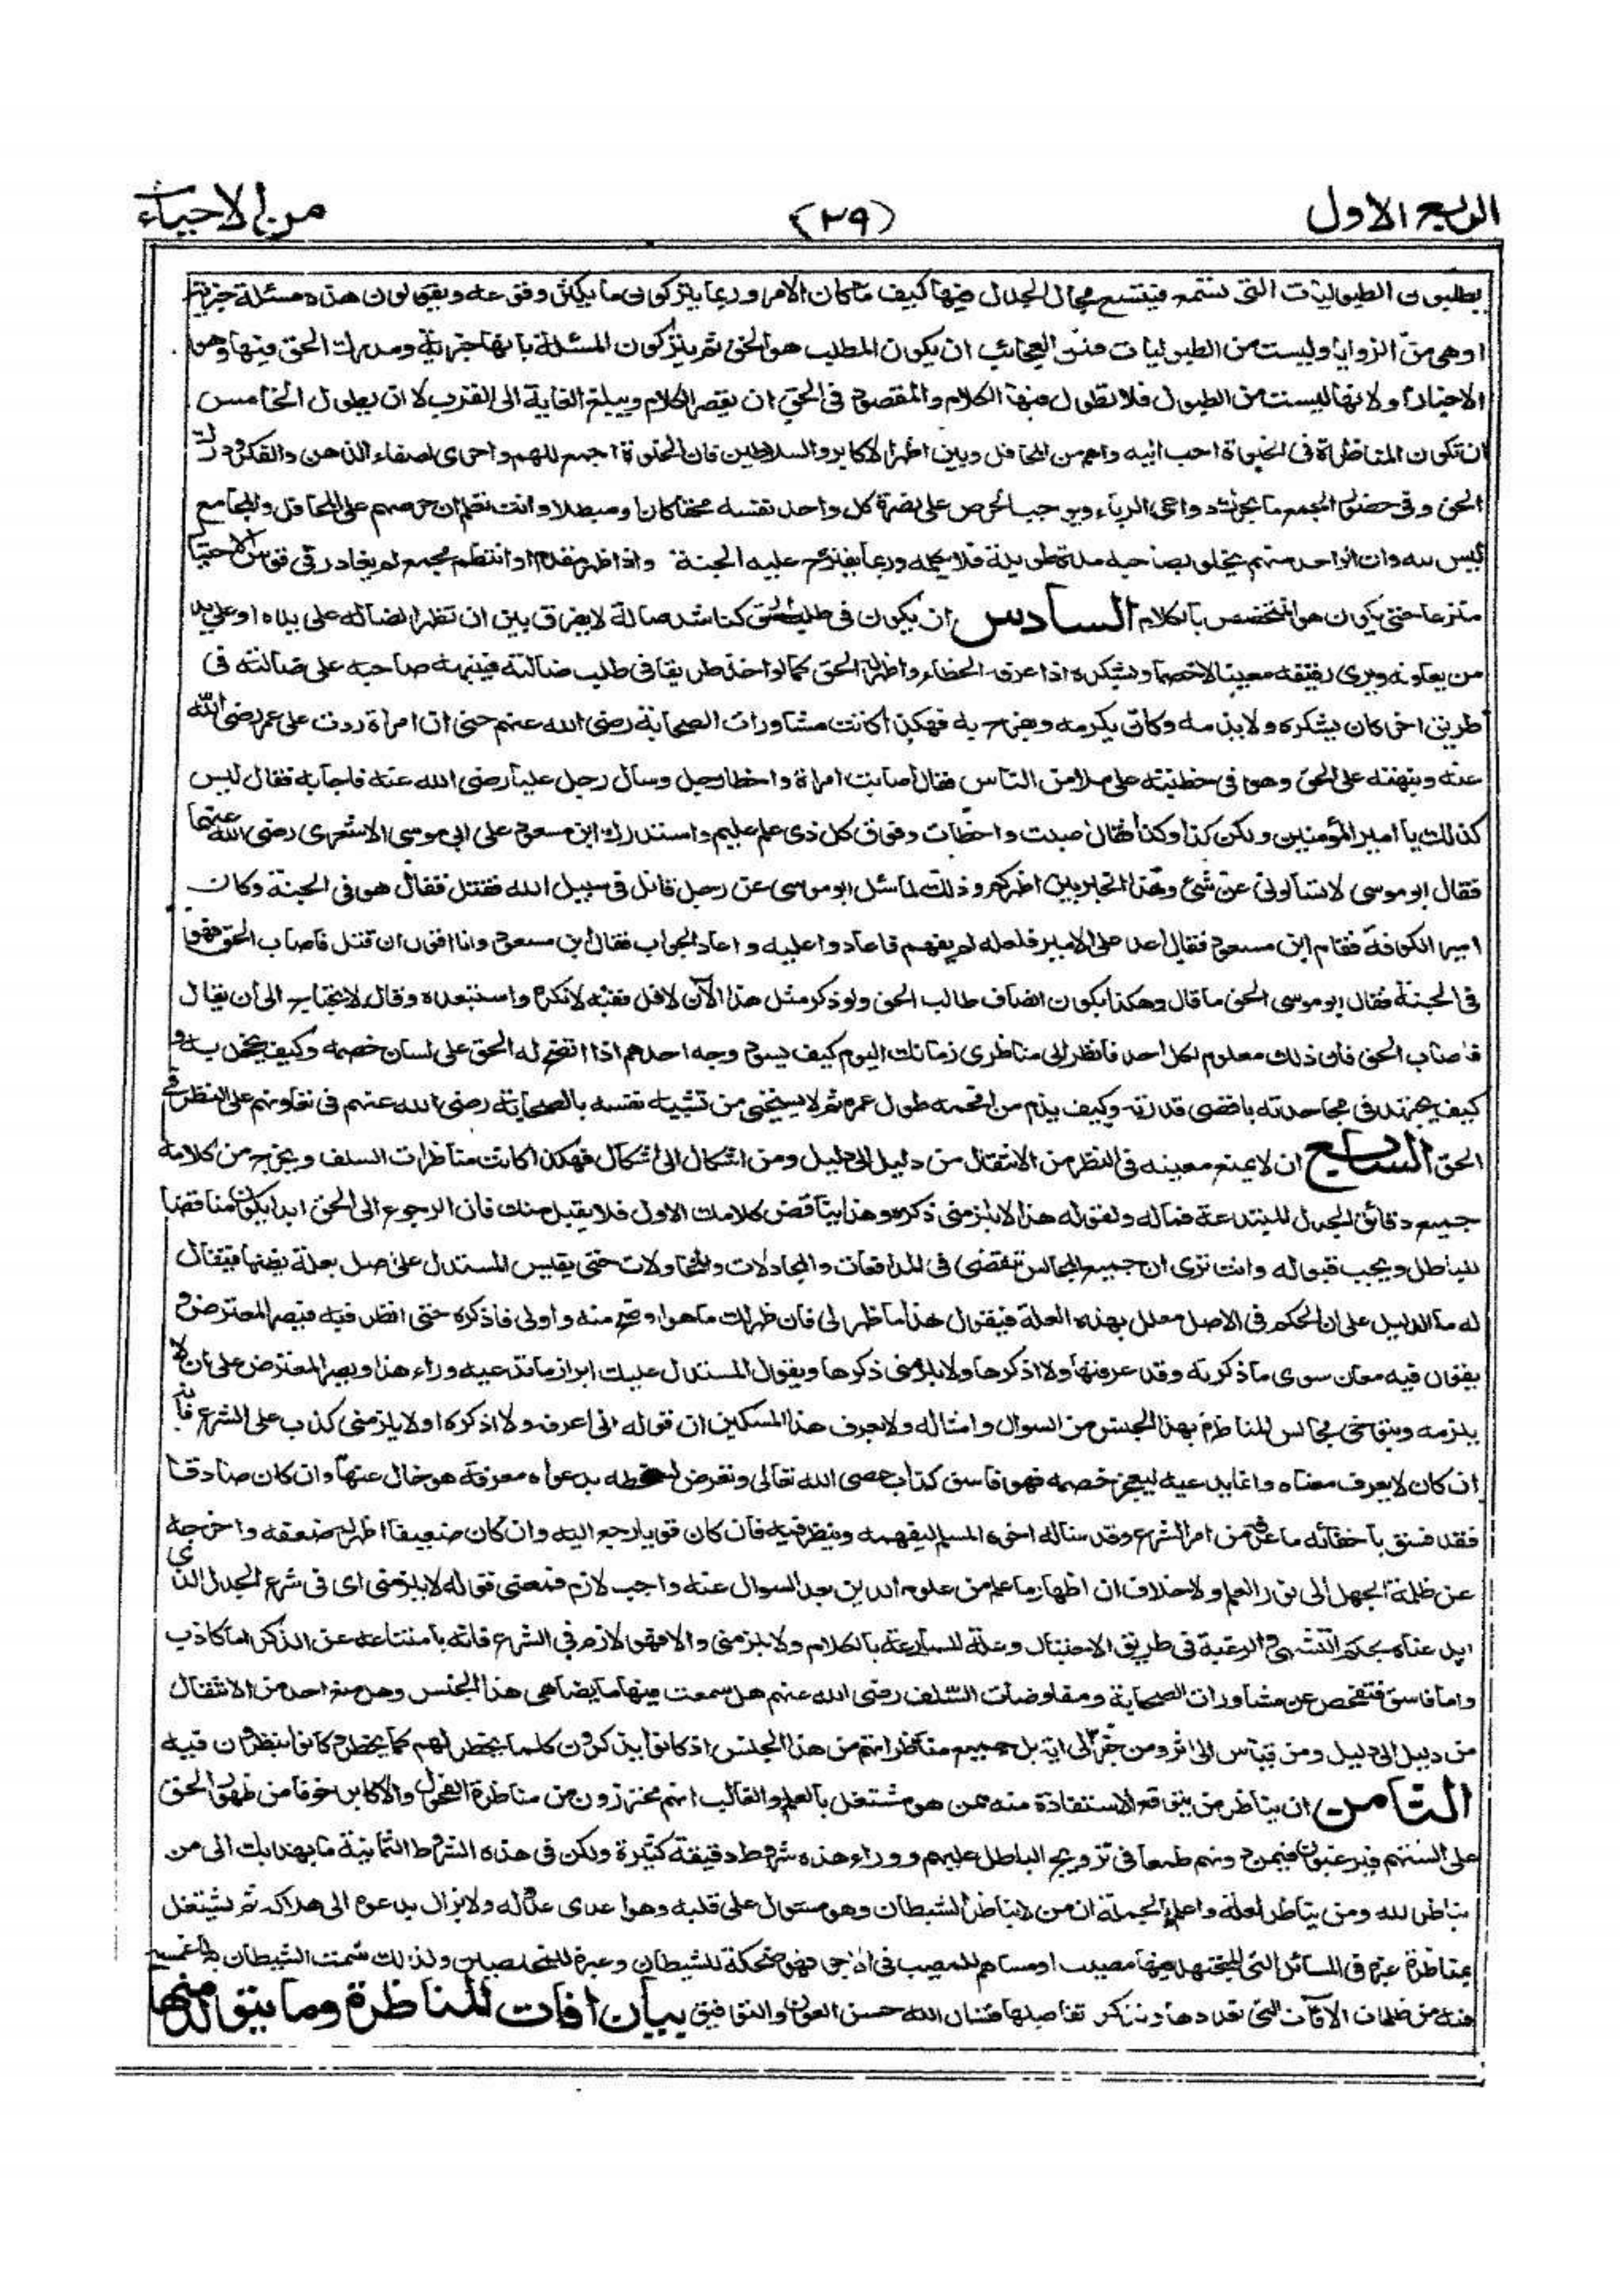 الربع الاول (٢٩) من الاحياء
يطلبون الطبوليات التى تستمع فيتسع مجال الجدل فيها كيف ما كان الامر وربما يتركون ما يكثر وقوعه ويقولون هذه مسئلة خبرية
او هى من الزوايا وليست من الطبوليات فمن العجائب ان يكون المطلب هو الحق ثم يتركون المسئلة بانها خبرية ومدرك الحق فيها هو
الاخبار او لانها ليست من الطبول فلا نطول فيها الكلام والمقصود فى الحق ان يقصر الكلام ويبلغ الغاية الى القرب لا ان يطول الخامس
ان تكون المناظرة فى الخلوة احب اليه واهم من المحافل وبين اظهر الاكابر والسلاطين فان الخلوة اجمع للهم واحرى لصفاء الذهن والفكر ودرك
الحق وفى حضور الجمع ما يحرك دواعى الرياء ويوجب الحرص على نصرة كل واحد نفسه محقا كان او مبطلا وانت تعلم ان حرصهم على المحافل والمجامع
ليس لله وان الواحد منهم يخلو بصاحبه مدة طويلة فلا يكلمه وربما يقترح عليه فلا يجيبه واذا ظهر مقدم او انتظم مجمع لم يغادر فى قوس الاحتيال
منزعا حتى يكون هو المتخصص بالكلام السادس ان يكون فى طلب الحق كناشد ضالة لا يفرق بين ان تظهر الضالة على يده او على يد
من يعاونه ويرى رفيقه معينا لا خصما ويشكره اذا عرفه الخطاء واظهر له الحق كما لو اخذ طريقا فى طلب ضالته فينبهه صاحبه على ضالته فى
طريق اخر كان يشكره ولا يذمه وكان يكرمه ويفرح به فهكذا كانت مشاورات الصحابة رضى الله عنهم حتى ان امراة ردت على عمر رضى الله
عنه ونبهته على الحق وهو فى خطبته على ملا من الناس فقال اصابت امراة واخطا رجل وسأل رجل عليا رضى الله عنه فاجابه فقال ليس
كذلك يا امير المؤمنين ولكن كذا وكذا فقال اصبت واخطات وفوق كل ذى علم عليم واستدرك ابن مسعود على ابى موسى الاشعرى رضى الله عنهما
فقال ابو موسى لا تسألونى عن شئ وهذا الحبر بين اظهركم وذلك لما سئل ابو موسى عن رجل قاتل فى سبيل الله فقتل فقال هو فى الجنة وكان
امير الكوفة فقام ابن مسعود فقال اعد على الامير فلعله لم يفهم فاعادوا عليه واعاد الجواب فقال ابن مسعود وانا اقول ان قتل فاصاب الحق فهو
فى الجنة فقال ابو موسى الحق ما قال وهكذا يكون انصاف طالب الحق ولو ذكر مثل هذا الآن لاقل فقيه لانكره واستبعده وقال لا يحتاج الى ان يقال
فاصاب الحق فان ذلك معلوم لكل احد فانظر الى مناظرى زمانك اليوم كيف يسود وجه احدهم اذا اتضح له الحق على لسان خصمه وكيف يخجل به و
كيف يجتهد فى مجاحدته باقصى قدرته وكيف يذم من افحمه طول عمره ثم لا يستحيى من تشبيه نفسه بالصحابة رضى الله عنهم فى تعاونهم على النظر فى
الحق السابع ان لا يمنع معينه فى النظر من الانتقال من دليل الى دليل ومن اشكال الى اشكال فهكذا كانت مناظرات السلف ويخرج من كلامه
جميع دقائق الجدل المبتدعة فيما له وعليه كقوله هذا لا يلزمنى ذكره وهذا يناقض كلامك الاول فلا يقبل منك فان الرجوع الى الحق ابدا يكون مناقضا
للباطل ويجب قبوله وانت ترى ان جميع المجالس تنقضى فى المدافعات والمجادلات والمحاولات حتى يقيس المستدل على اصل بعلة يظنها فيقال
له ما الدليل على ان الحكم فى الاصل معلل بهذه العلة فيقول هذا ما ظهر لى فان ظهر لك ما هو اوضح منه واولى فاذكره حتى انظر فيه فيصر المعترض و
يقول فيه معان سوى ما ذكرته وقد عرفتها ولا اذكرها ولا يلزمنى ذكرها ويقول المستدل عليك ابراز ما تدعيه وراء هذا ويصر المعترض على انه لا
يلزمه ويتوخى مجالس المناظرة بهذا الجنس من السوال وامثاله ولا يعرف هذا المسكين ان قوله انى اعرفه ولا اذكره اذ لا يلزمنى كذب على الشرع فانه
ان كان لا يعرف معناه وانما يدعيه ليعجز خصمه فهو فاسق كذاب عصى الله تعالى وتعرض لسخطه بدعواه معرفة هو خال عنها وان كان صادقا
فقد فسق باخفائه ما عرفه من امر الشرع وقد ساله اخوه المسلم ليفهمه وينظر فيه فان كان قويا رجع اليه وان كان ضعيفا اظهر له ضعفه واخرجه
عن ظلمة الجهل الى نور العلم ولا خلاف ان اظهار ما علم من علوم الدين بعد السوال عنه واجب لازم فمعنى قوله لا يلزمنى اى فى شرع الجدل الذى
ابدعناه بحكم التشهى والرغبة فى طريق الاحتيال والمصارعة بالكلام ولا يلزمنى والا فهو لازم فى الشرع فانه بامتناعه عن الذكر اما كاذب
واما فاسق فتفحص عن مشاورات الصحابة ومفاوضات السلف رضى الله عنهم هل سمعت فيها ما يضاهى هذا الجنس وهل منع احد من الانتقال
من دليل الى دليل ومن قياس الى اثر ومن خبر الى اية بل جميع مناظراتهم من هذا الجنس اذ كانوا يذكرون كلما يخطر لهم كما يخطر وكانوا ينظرون فيه
الثامن ان يناظر من يتوقع الاستفادة منه ممن هو مشتغل بالعلم والغالب انهم يحترزون من مناظرة الفحول والاكابر خوفا من ظهور الحق
على السنتهم فيرغبون فيمن دونهم طمعا فى ترويج الباطل عليهم ووراء هذه شروط دقيقة كثيرة ولكن فى هذه الشروط الثمانية ما يهديك الى من
يناظر لله ومن يناظر لعلة واعلم بالجملة ان من لا يناظر الشيطان وهو مستول على قلبه وهو اعدى عدو له ولا يزال يدعوه الى هلاكه ثم يشتغل
بمناظرة غيره فى المسائل التى المجتهد فيها مصيب او مساهم للمصيب فى الاجر فهو ضحكة للشيطان وعبرة للمخلصين ولذلك شمت الشيطان به لما غمسه
فيه من ظلمات الآفات التى نعددها ونذكر تفاصيلها فنسال الله حسن العون والتوفيق بيان افات المناظرة وما يتولد منها